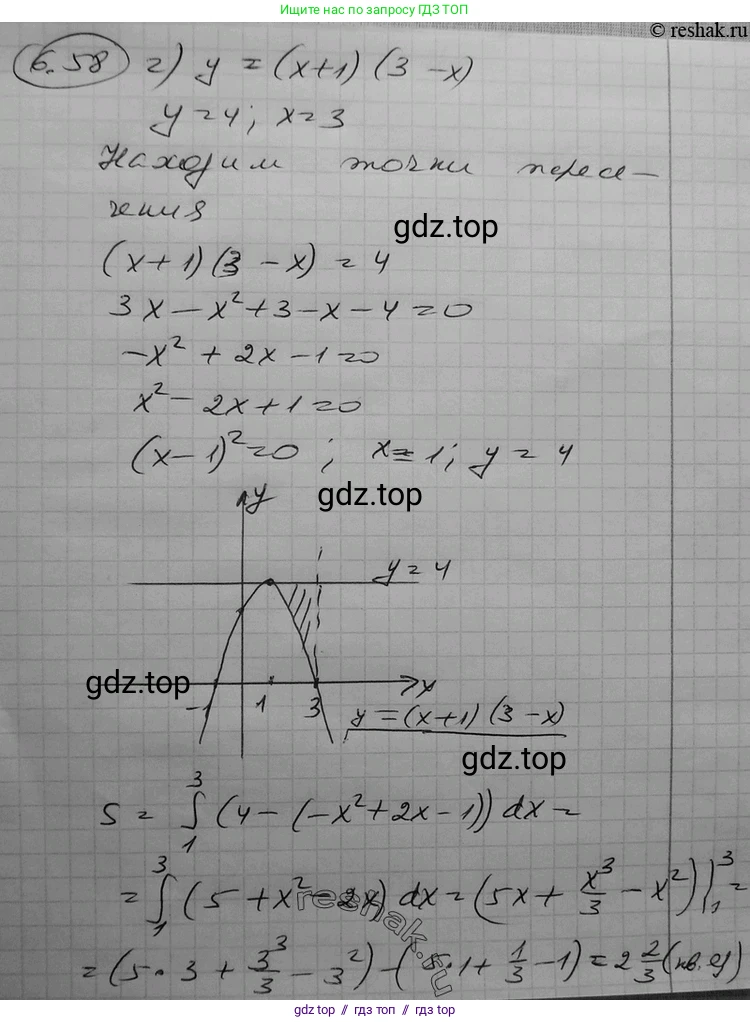 Ищите нас по запросу ГДЗ ТОП
© reshak.ru
6.58 г) y = (x+1) (3 - x)
y = 4; x = 3
Находим точки пересе-
чения
gdz.top
(x + 1) (3 - x) = 4
3x - x² + 3 - x - 4 = 0
-x² + 2x - 1 = 0
x² - 2x + 1 = 0
(x - 1)² = 0; x = 1; y = 4
gdz.top
y
y = 4
gdz.top
x
-1 1 3
y = (x+1) (3 - x)
gdz.top
S = ∫₁³ (4 - (-x² + 2x - 1)) dx =
= ∫₁³ (5 + x² - 2x) dx = (5x + x³/3 - x²) |₁³ =
reshak.ru
= (5·3 + 3³/3 - 3²) - (5·1 + 1/3 - 1) = 2 2/3 (кв. ед)
gdz.top // гдз топ // gdz top // гдз.топ